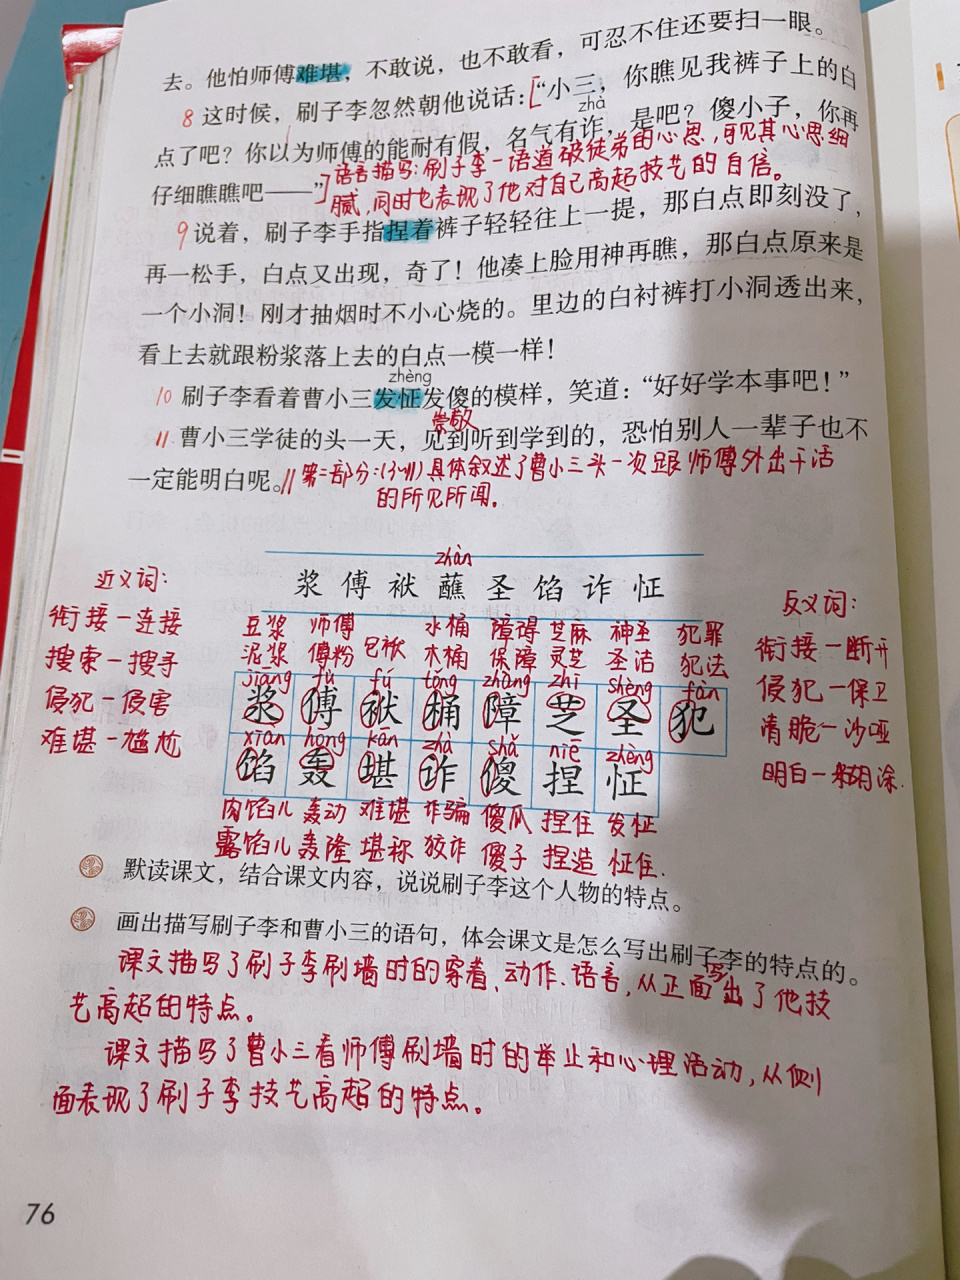 去。他怕师傅难堪，不敢说，也不敢看，可忍不住还要扫一眼。
8 这时候，刷子李忽然朝他说话：[“小三，你瞧见我裤子上的白
zhà
点了吧？你以为师傅的能耐有假，名气有诈，是吧？傻小子，你再
仔细瞧瞧吧——”]
语言描写：刷子李一语道破徒弟的心思，可见其心思细
腻，同时也表现了他对自己高超技艺的自信。
9 说着，刷子李手指捏着裤子轻轻往上一提，那白点即刻没了，
再一松手，白点又出现，奇了！他凑上脸用神再瞧，那白点原来是
一个小洞！刚才抽烟时不小心烧的。里边的白衬裤打小洞透出来，
看上去就跟粉浆落上去的白点一模一样！
zhèng
10 刷子李看着曹小三发怔发傻的模样，笑道：“好好学本事吧！”
崇敬
11 曹小三学徒的头一天，见到听到学到的，恐怕别人一辈子也不
一定能明白呢。// 第二部分：(3-11) 具体叙述了曹小三头一次跟师傅外出干活
的所见所闻。
zhàn
浆 傅 袱 蘸 圣 馅 诈 怔
近义词：
衔接－连接
搜索－搜寻
侵犯－侵害
难堪－尴尬
反义词：
衔接－断开
侵犯－保卫
清脆－沙哑
明白－糊涂
豆浆 师傅 水桶 障碍 芝麻 神圣 犯罪
泥浆 傅粉 包袱 木桶 保障 灵芝 圣洁 犯法
jiāng fù fú tǒng zhàng zhī shèng fàn
浆 傅 袱 桶 障 芝 圣 犯
xiàn hōng kān zhà shǎ niē zhèng
馅 轰 堪 诈 傻 捏 怔
肉馅儿 轰动 难堪 诈骗 傻瓜 捏住 发怔
露馅儿 轰隆 堪称 狡诈 傻子 捏造 怔住.
默读课文，结合课文内容，说说刷子李这个人物的特点。
画出描写刷子李和曹小三的语句，体会课文是怎么写出刷子李的特点的。
课文描写了刷子李刷墙时的穿着、动作、语言，从正面写出了他技
艺高超的特点。
课文描写了曹小三看师傅刷墙时的举止和心理活动，从侧
面表现了刷子李技艺高超的特点。
76